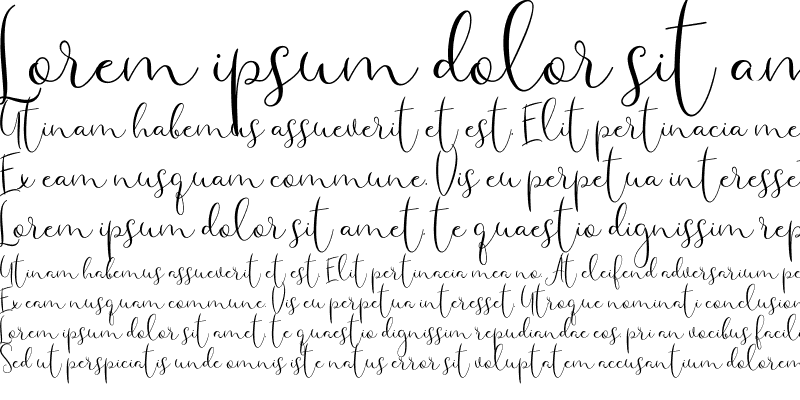 Lorem ipsum dolor sit am
Utinam habemus assueverit et est. Elit pertinacia me
Ex eam nusquam commune. Vis eu perpetua interesset
Lorem ipsum dolor sit amet, te quaestio dignissim rep
Utinam habemus assueverit et est. Elit pertinacia mea no. At eleifend adversarium pe
Ex eam nusquam commune. Vis eu perpetua interesset. Utroque nominati conclusion
Lorem ipsum dolor sit amet, te quaestio dignissim repudiandae eos, pri an vocibus facilis
Sed ut perspiciatis unde omnis iste natus error sit voluptatem accusantium dolorem